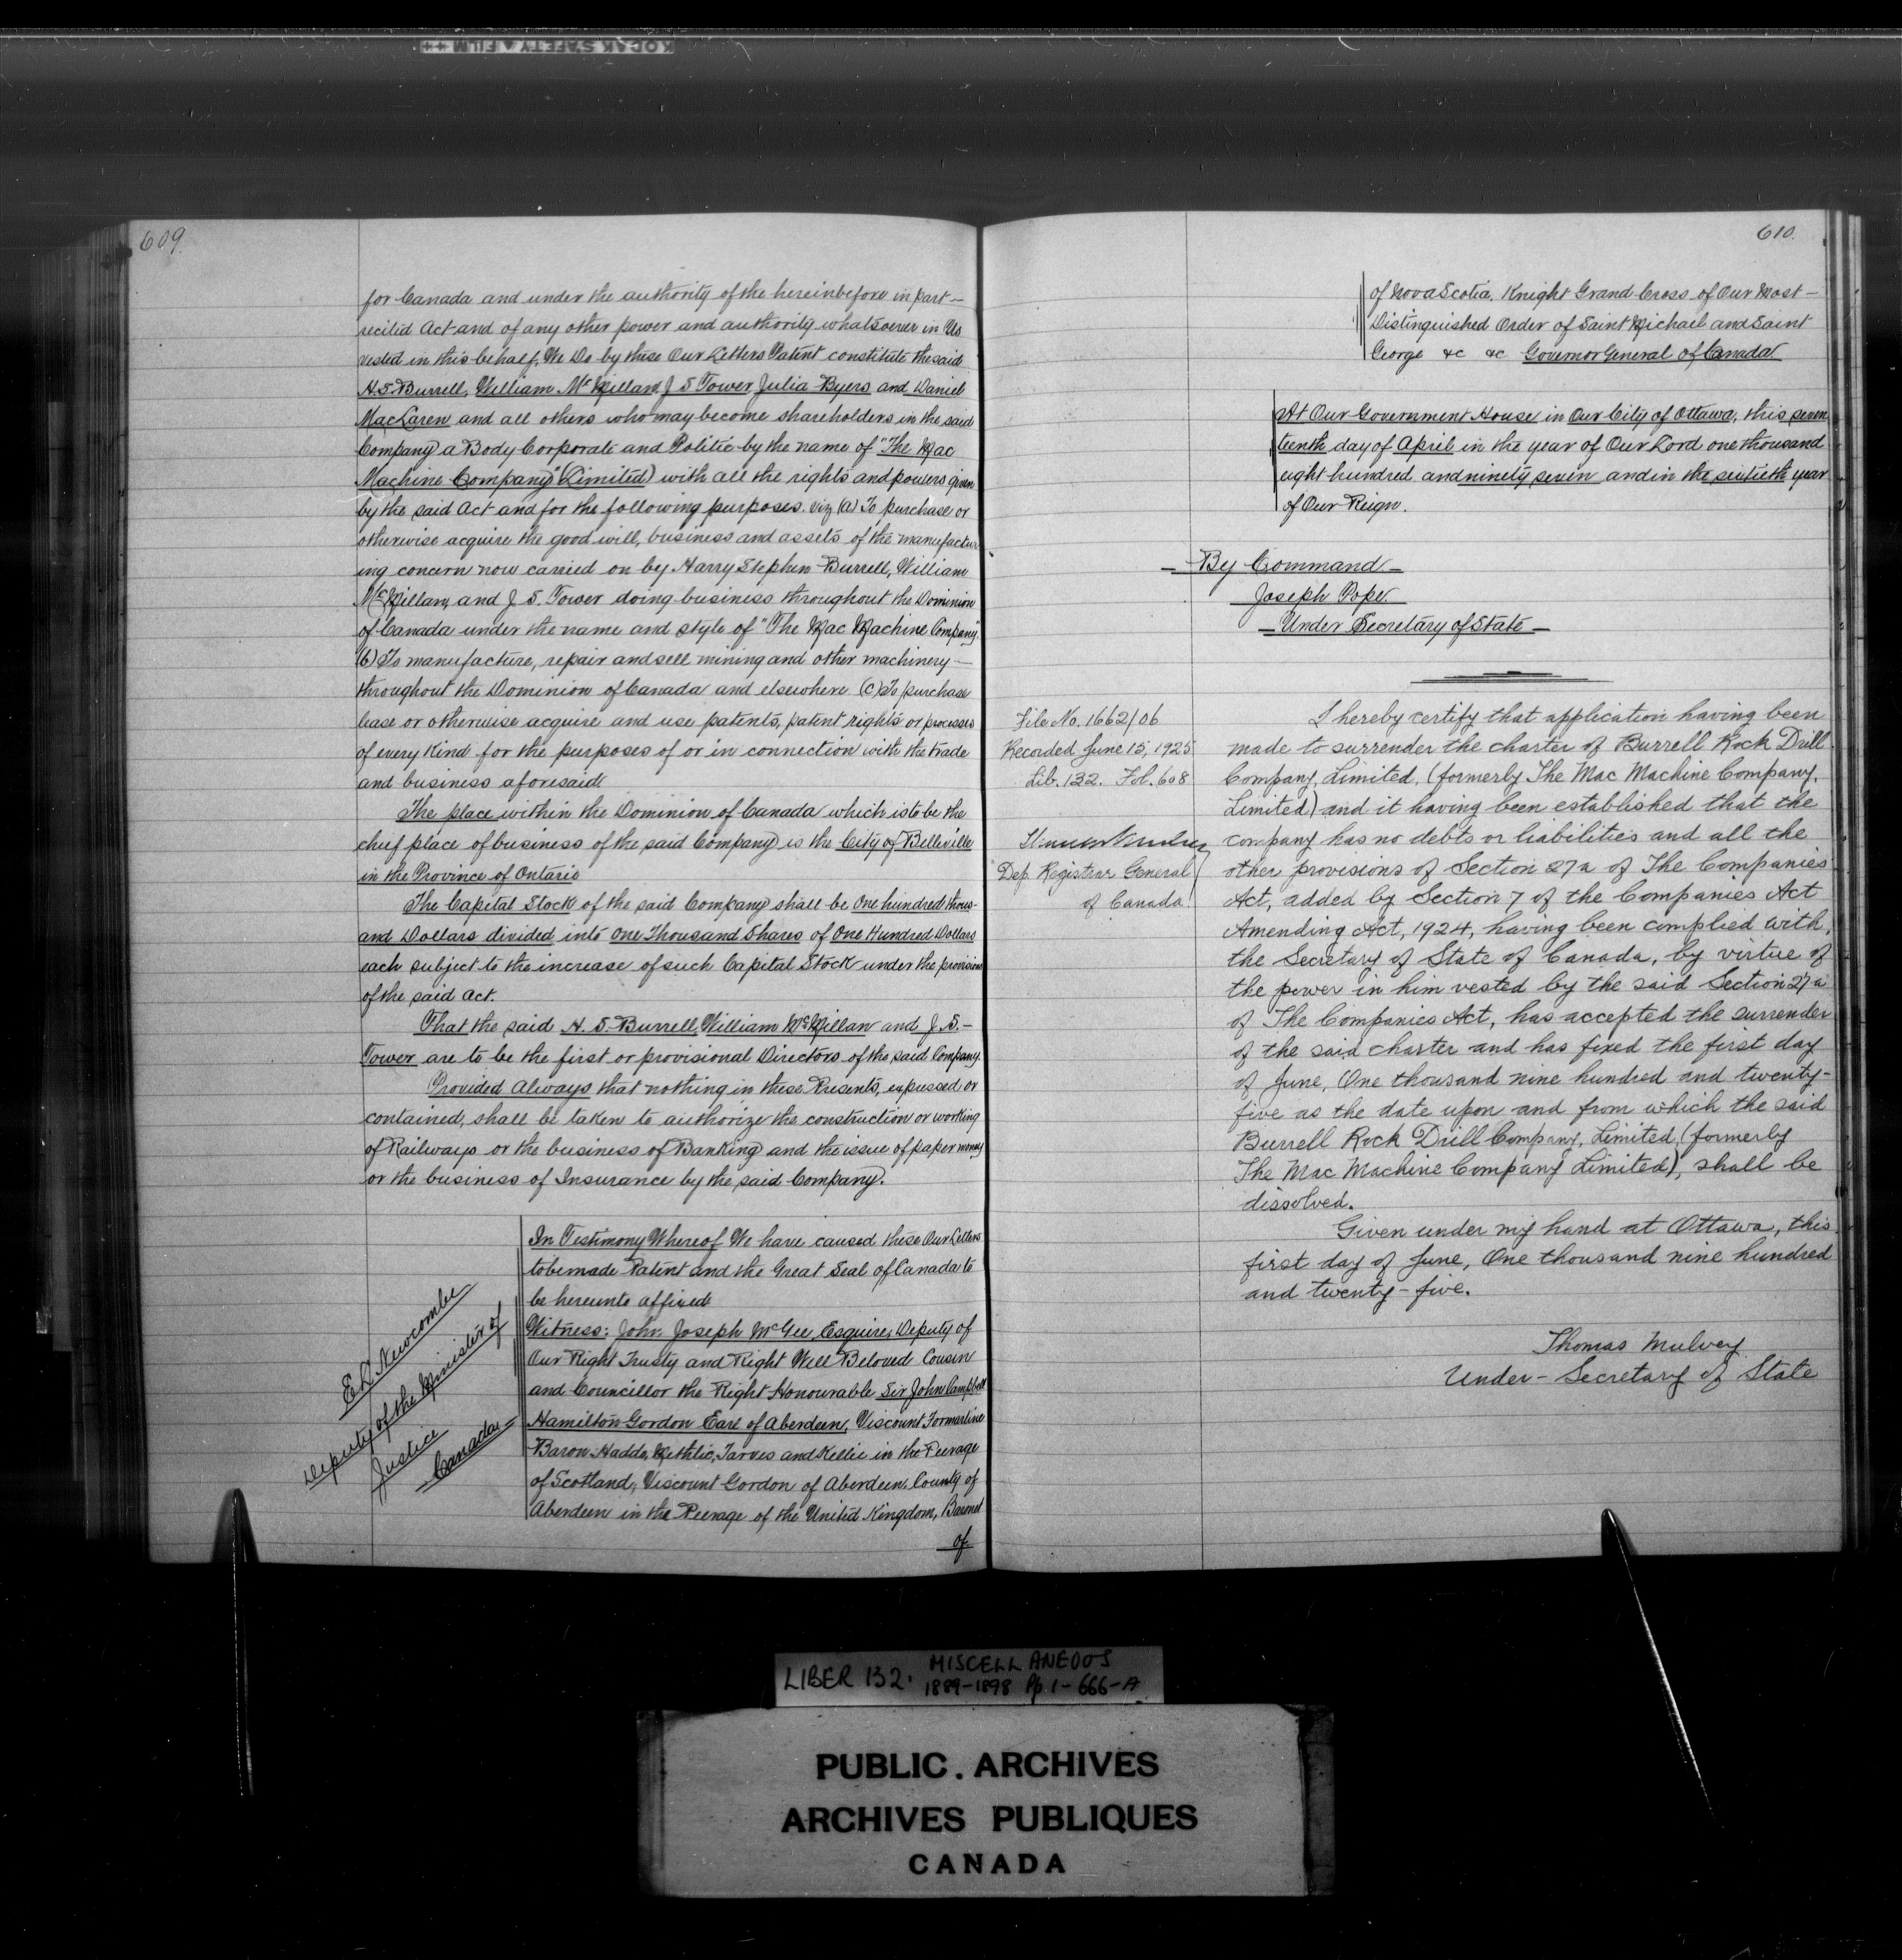 KODAK SAFETY FILM
609.
for Canada and under the authority of the hereinbefore in part-
recited Act and of any other power and authority whatsoever in Us
vested in this behalf, We Do by these Our Letters Patent constitute the said
H. S. Burrell, William McMillan, J S Tower, Julia Byers and Daniel
MacLaren and all others who may become shareholders in the said
Company a Body Corporate and Politic by the name of "The Mac
Machine Company" (Limited) with all the rights and powers given
by the said Act and for the following purposes. viz (a) To purchase or
otherwise acquire the good will, business and assets of the manufactur
ing concern now carried on by Harry Stephen Burrell, William
McMillan, and J. S. Tower doing business throughout the Dominion
of Canada under the name and style of "The Mac Machine Company".
(b) To manufacture, repair and sell mining and other machinery-
throughout the Dominion of Canada and elsewhere (c) To purchase
lease or otherwise acquire and use patents, patent rights or processes
of every kind for the purposes of or in connection with the trade
and business aforesaid.
The place within the Dominion of Canada which is to be the
chief place of business of the said Company is the City of Belleville
in the Province of Ontario
The Capital Stock of the said Company shall be One hundred thous-
and Dollars divided into One Thousand Shares of One Hundred Dollars
each subject to the increase of such Capital Stock under the provisions
of the said Act.
That the said H. S. Burrell, William McMillan and J. S.-
Tower are to be the first or provisional Directors of the said Company.
Provided Always that nothing in these Presents, expressed or
contained, shall be taken to authorize the construction or working
of Railways or the business of Banking and the issue of paper money
or the business of Insurance by the said Company.
In Testimony Whereof We have caused these Our Letters
to be made Patent and the Great Seal of Canada to
be hereunto affixed
Witness: John Joseph McGee, Esquire, Deputy of
Our Right Trusty and Right Well Beloved Cousin
and Councillor the Right Honourable Sir John Campbell
Hamilton-Gordon Earl of Aberdeen, Viscount Formartine
Baron Haddo, Methlic, Tarves and Kellie in the Peerage
of Scotland, Viscount Gordon of Aberdeen, County of
Aberdeen in the Peerage of the United Kingdom, Baronet
of
E L Newcombe
Deputy of the Minister of
Justice
Canada
610.
of Nova Scotia, Knight Grand Cross of Our Most-
Distinguished Order of Saint Michael and Saint
George &c &c Governor General of Canada
At Our Government House in Our City of Ottawa, this seven
teenth day of April in the year of Our Lord one thousand
eight hundred and ninety seven and in the sixtieth year
of Our Reign.
- By Command -
Joseph Pope
- Under Secretary of State -
File No. 1662/06
Recorded June 15, 1925
Lib. 132. Fol. 608
Dep. Registrar General
of Canada
I hereby certify that application having been
made to surrender the charter of Burrell Rock Drill
Company, Limited, (formerly The Mac Machine Company,
Limited) and it having been established that the
company has no debts or liabilities and all the
other provisions of Section 27a of The Companies
Act, added by Section 7 of the Companies Act
Amending Act, 1924, having been complied with,
the Secretary of State of Canada, by virtue of
the power in him vested by the said Section 27a
of The Companies Act, has accepted the surrender
of the said charter and has fixed the first day
of June, One thousand nine hundred and twenty-
five as the date upon and from which the said
Burrell Rock Drill Company, Limited, (formerly
The Mac Machine Company Limited), shall be
dissolved.
Given under my hand at Ottawa, this
first day of June, One thousand nine hundred
and twenty-five.
Thomas Mulvey
Under-Secretary of State
LIBER 132. MISCELLANEOUS
1889-1898 Pp. 1-666-A
PUBLIC. ARCHIVES
ARCHIVES PUBLIQUES
CANADA